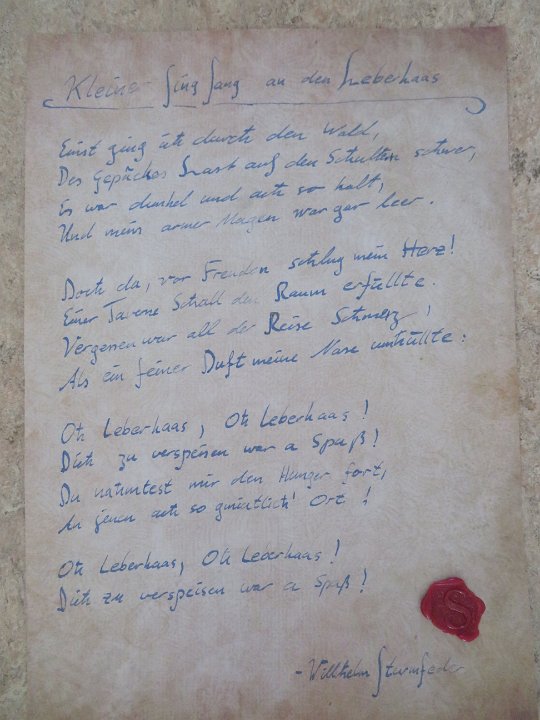 Kleiner Sing Sang an den Leberhaas
Einst ging ich durch den Wald,
Des Gepäckes Last auf den Schultern schwer,
Es war dunkel und ach so kalt,
Und mein armer Magen war gar leer.
Doch da, vor Freuden schlug mein Herz!
Einer Taverne Schall den Raum erfüllte.
Vergessen war all der Reise Schmerz,
Als ein feiner Duft meine Nase umhüllte:
Oh Leberhaas, Oh Leberhaas!
Dich zu verspeisen war a Spaß!
Du nahmtest mir den Hunger fort,
An jenen ach so gmüatlich! Ort!
Oh Leberhaas, Oh Leberhaas!
Dich zu verspeisen war a Spaß!
S
- Willhelm Sturmfeder